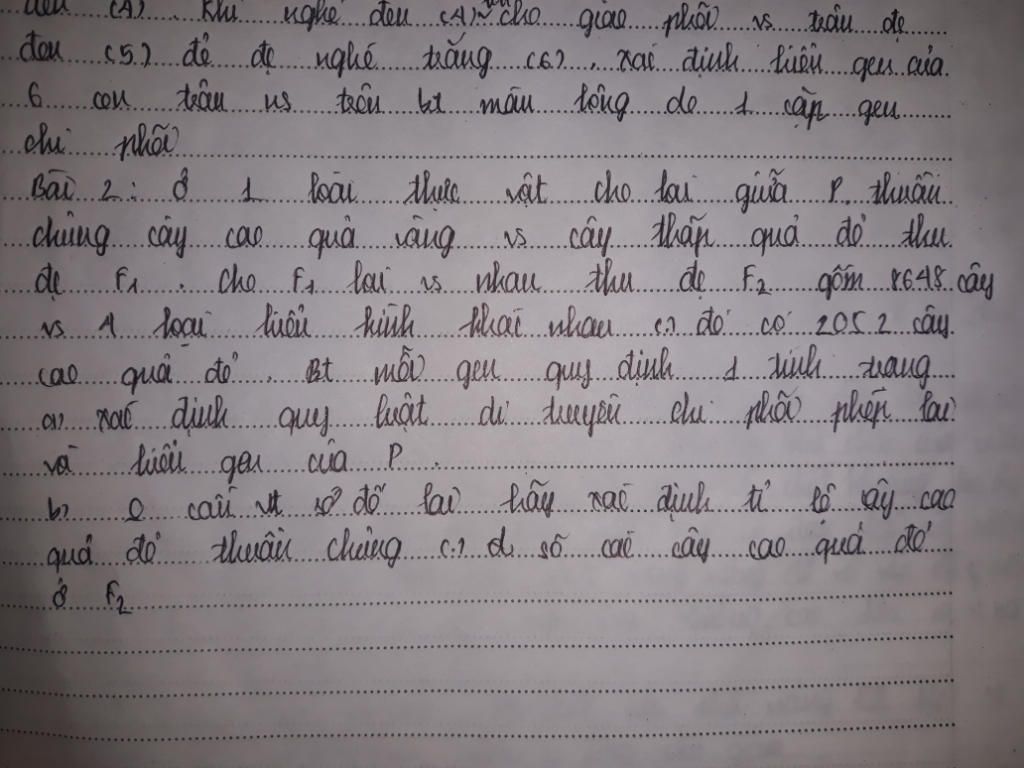 đen (4). Khi nghé đen (4) cho giao phối vs trâu đẹ
đen (5) đẻ đc nghé trắng (6). xác định kiểu gen của
6 con trâu ns trên bt màu lông do 1 cặp gen
chi phối
Bài 2: Ở 1 loài thực vật cho lai giữa P. thuần
chủng cây cao quả vàng vs cây thấp quả đỏ thu
đc F1. cho F1 lai vs nhau thu đc F2 gồm 8648 cây
vs 4 loại kiểu hình khác nhau (.) đó có 2052 cây
cao quả đỏ. Bt mỗi gen quy định 1 tính trạng
a, xác định quy luật di truyền chi phối phép lai
và kiểu gen của P.
b, 0 cần vt sơ đồ lai hãy xác định tỉ lệ cây cao
quả đỏ thuần chủng (.) d. số các cây cao quả đỏ
ở F2